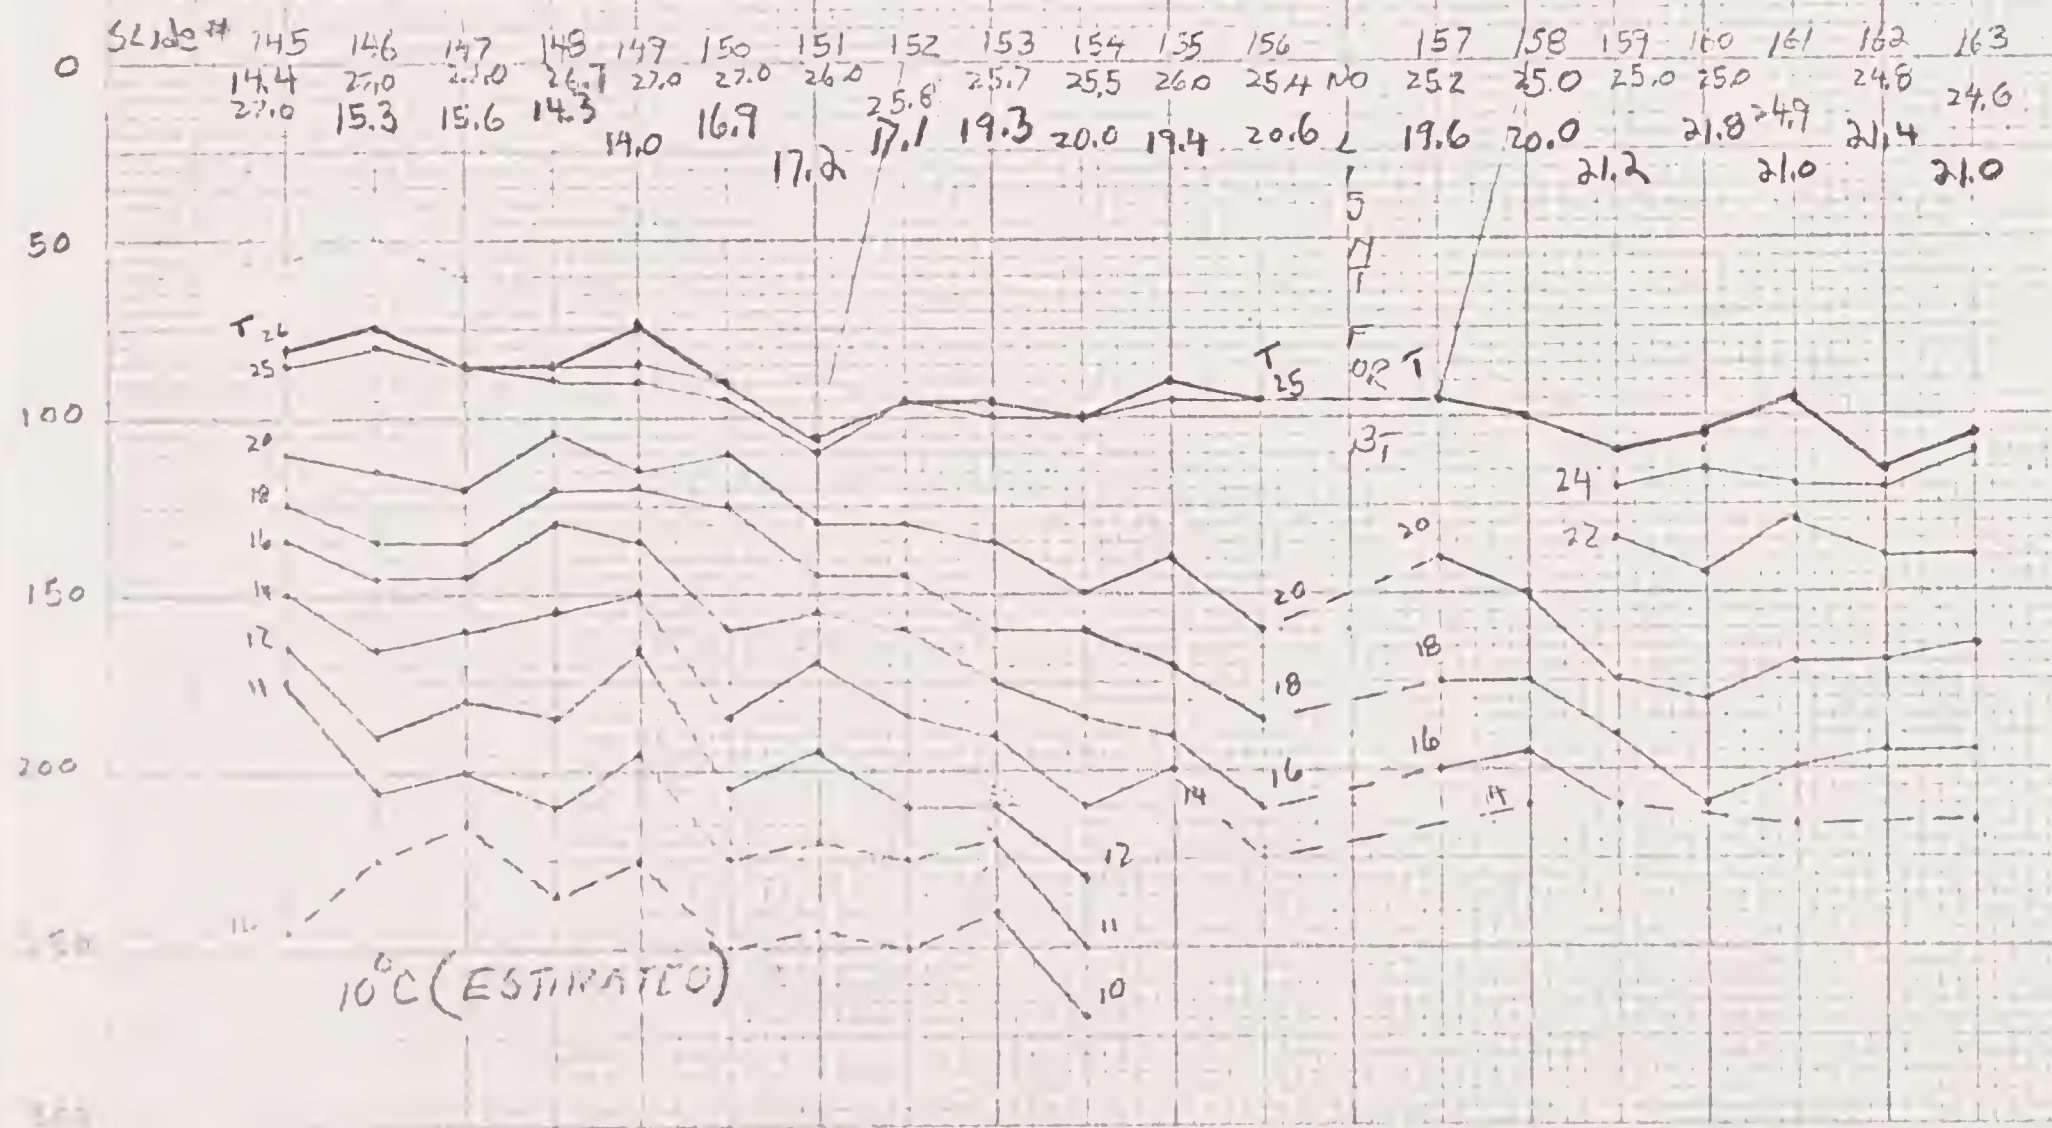 Slide # 145 146 147 148 149 150 151 152 153 154 155 156 157 158 159 160 161 162 163
0
14.4 27.0 27.0 26.7 27.0 27.0 26.0 25.8 25.7 25.5 26.0 25.4 NO 25.2 25.0 25.0 25.0 24.9 24.8 24.6
27.0 15.3 15.6 14.3 14.0 16.9 17.2 17.1 19.3 20.0 19.4 20.6 19.6 20.0 21.2 21.8 21.0 21.4 21.0
50
T 26
25
T
25
FOR T
BT
100
20
24
18
20
22
16
150
14
20
12
18
11
18
16
200
16
14
14
12
11
10
10°C (ESTIMATED)
10